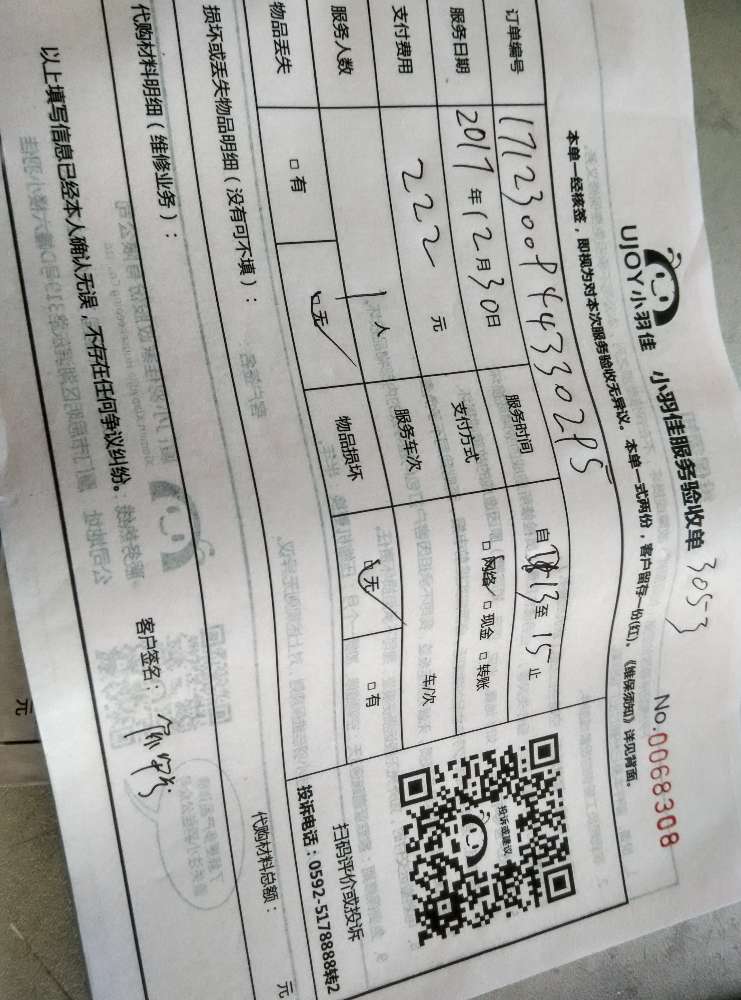 UJOY小羽佳 小羽佳服务验收单 305-3
No.0068308
本单一经核签，即视为对本次服务验收无异议。本单一式两份，客户留存一份(红)。《维保须知》详见背面。
订单编号
服务日期 2017年12月30日 服务时间 自13至15止
支付费用 222元 支付方式 □网络 □现金 □转账
服务人数 1人 服务车次 车/次
物品丢失 □有 □无 物品损坏 □无 □有
投诉或建议
扫码评价或投诉
投诉电话：0592-5178888转2
损坏或丢失物品明细（没有可不填）：
代购材料明细（维修业务）：
代购材料总额： 元
以上填写信息已经本人确认无误，不存在任何争议纠纷。 客户签名：
元